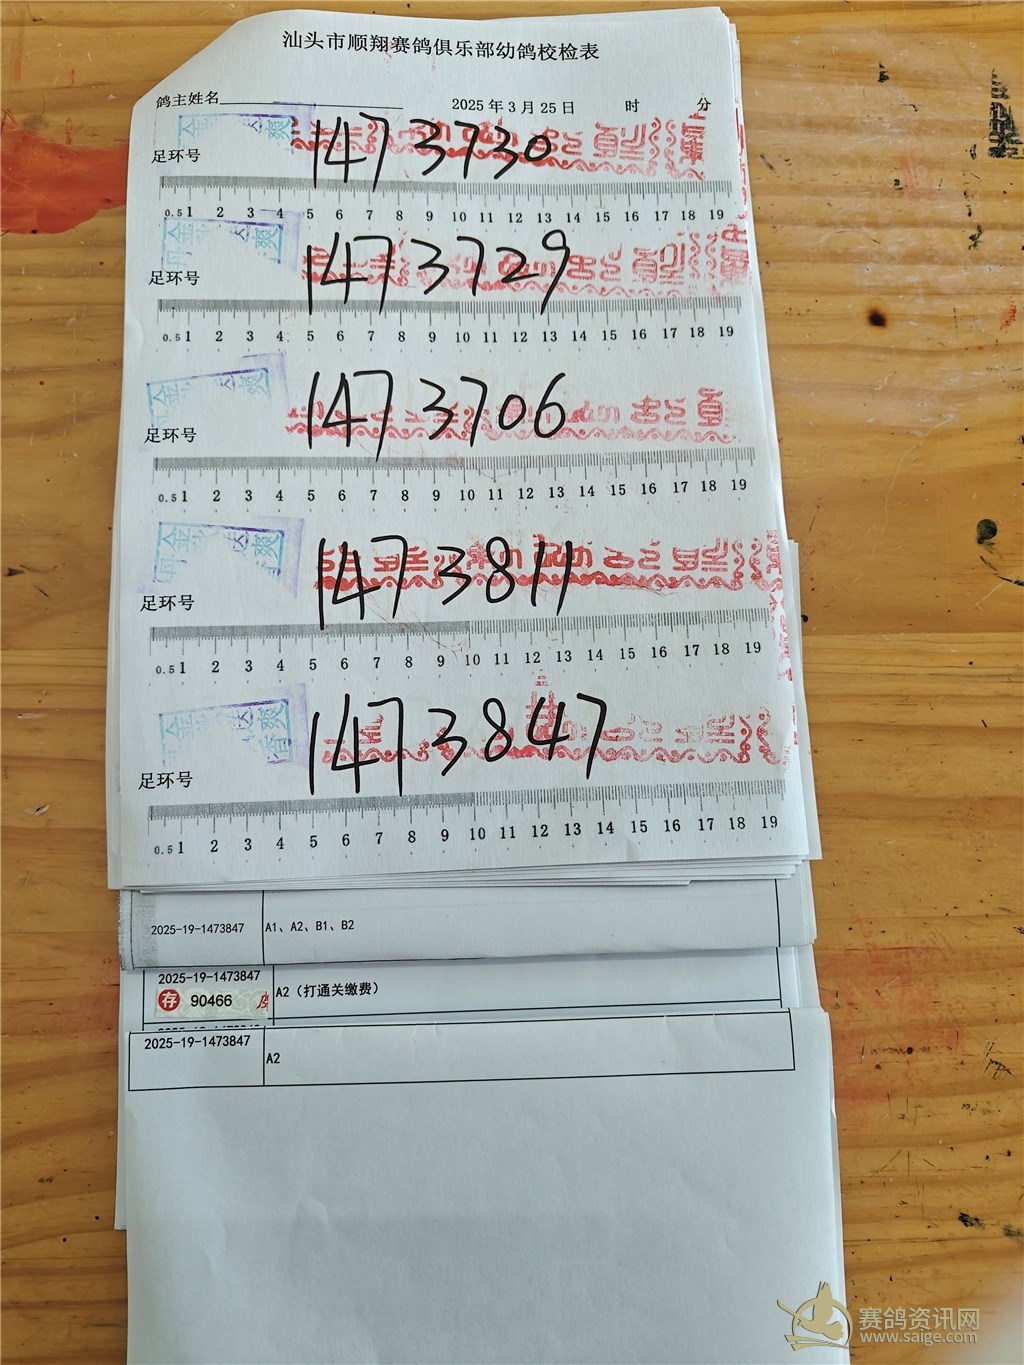 汕头市顺翔赛鸽俱乐部幼鸽校检表
鸽主姓名 2025 年 3 月 25 日 时 分
足环号 1473730
0.5 1 2 3 4 5 6 7 8 9 10 11 12 13 14 15 16 17 18 19
足环号 1473729
0.5 1 2 3 4 5 6 7 8 9 10 11 12 13 14 15 16 17 18 19
足环号 1473706
0.5 1 2 3 4 5 6 7 8 9 10 11 12 13 14 15 16 17 18 19
足环号 1473811
0.5 1 2 3 4 5 6 7 8 9 10 11 12 13 14 15 16 17 18 19
足环号 1473847
0.5 1 2 3 4 5 6 7 8 9 10 11 12 13 14 15 16 17 18 19
2025-19-1473847 A1、A2、B1、B2
2025-19-1473847
存 90466 A2（打通关缴费）
2025-19-1473847
A2
赛鸽资讯网
www.saige.com